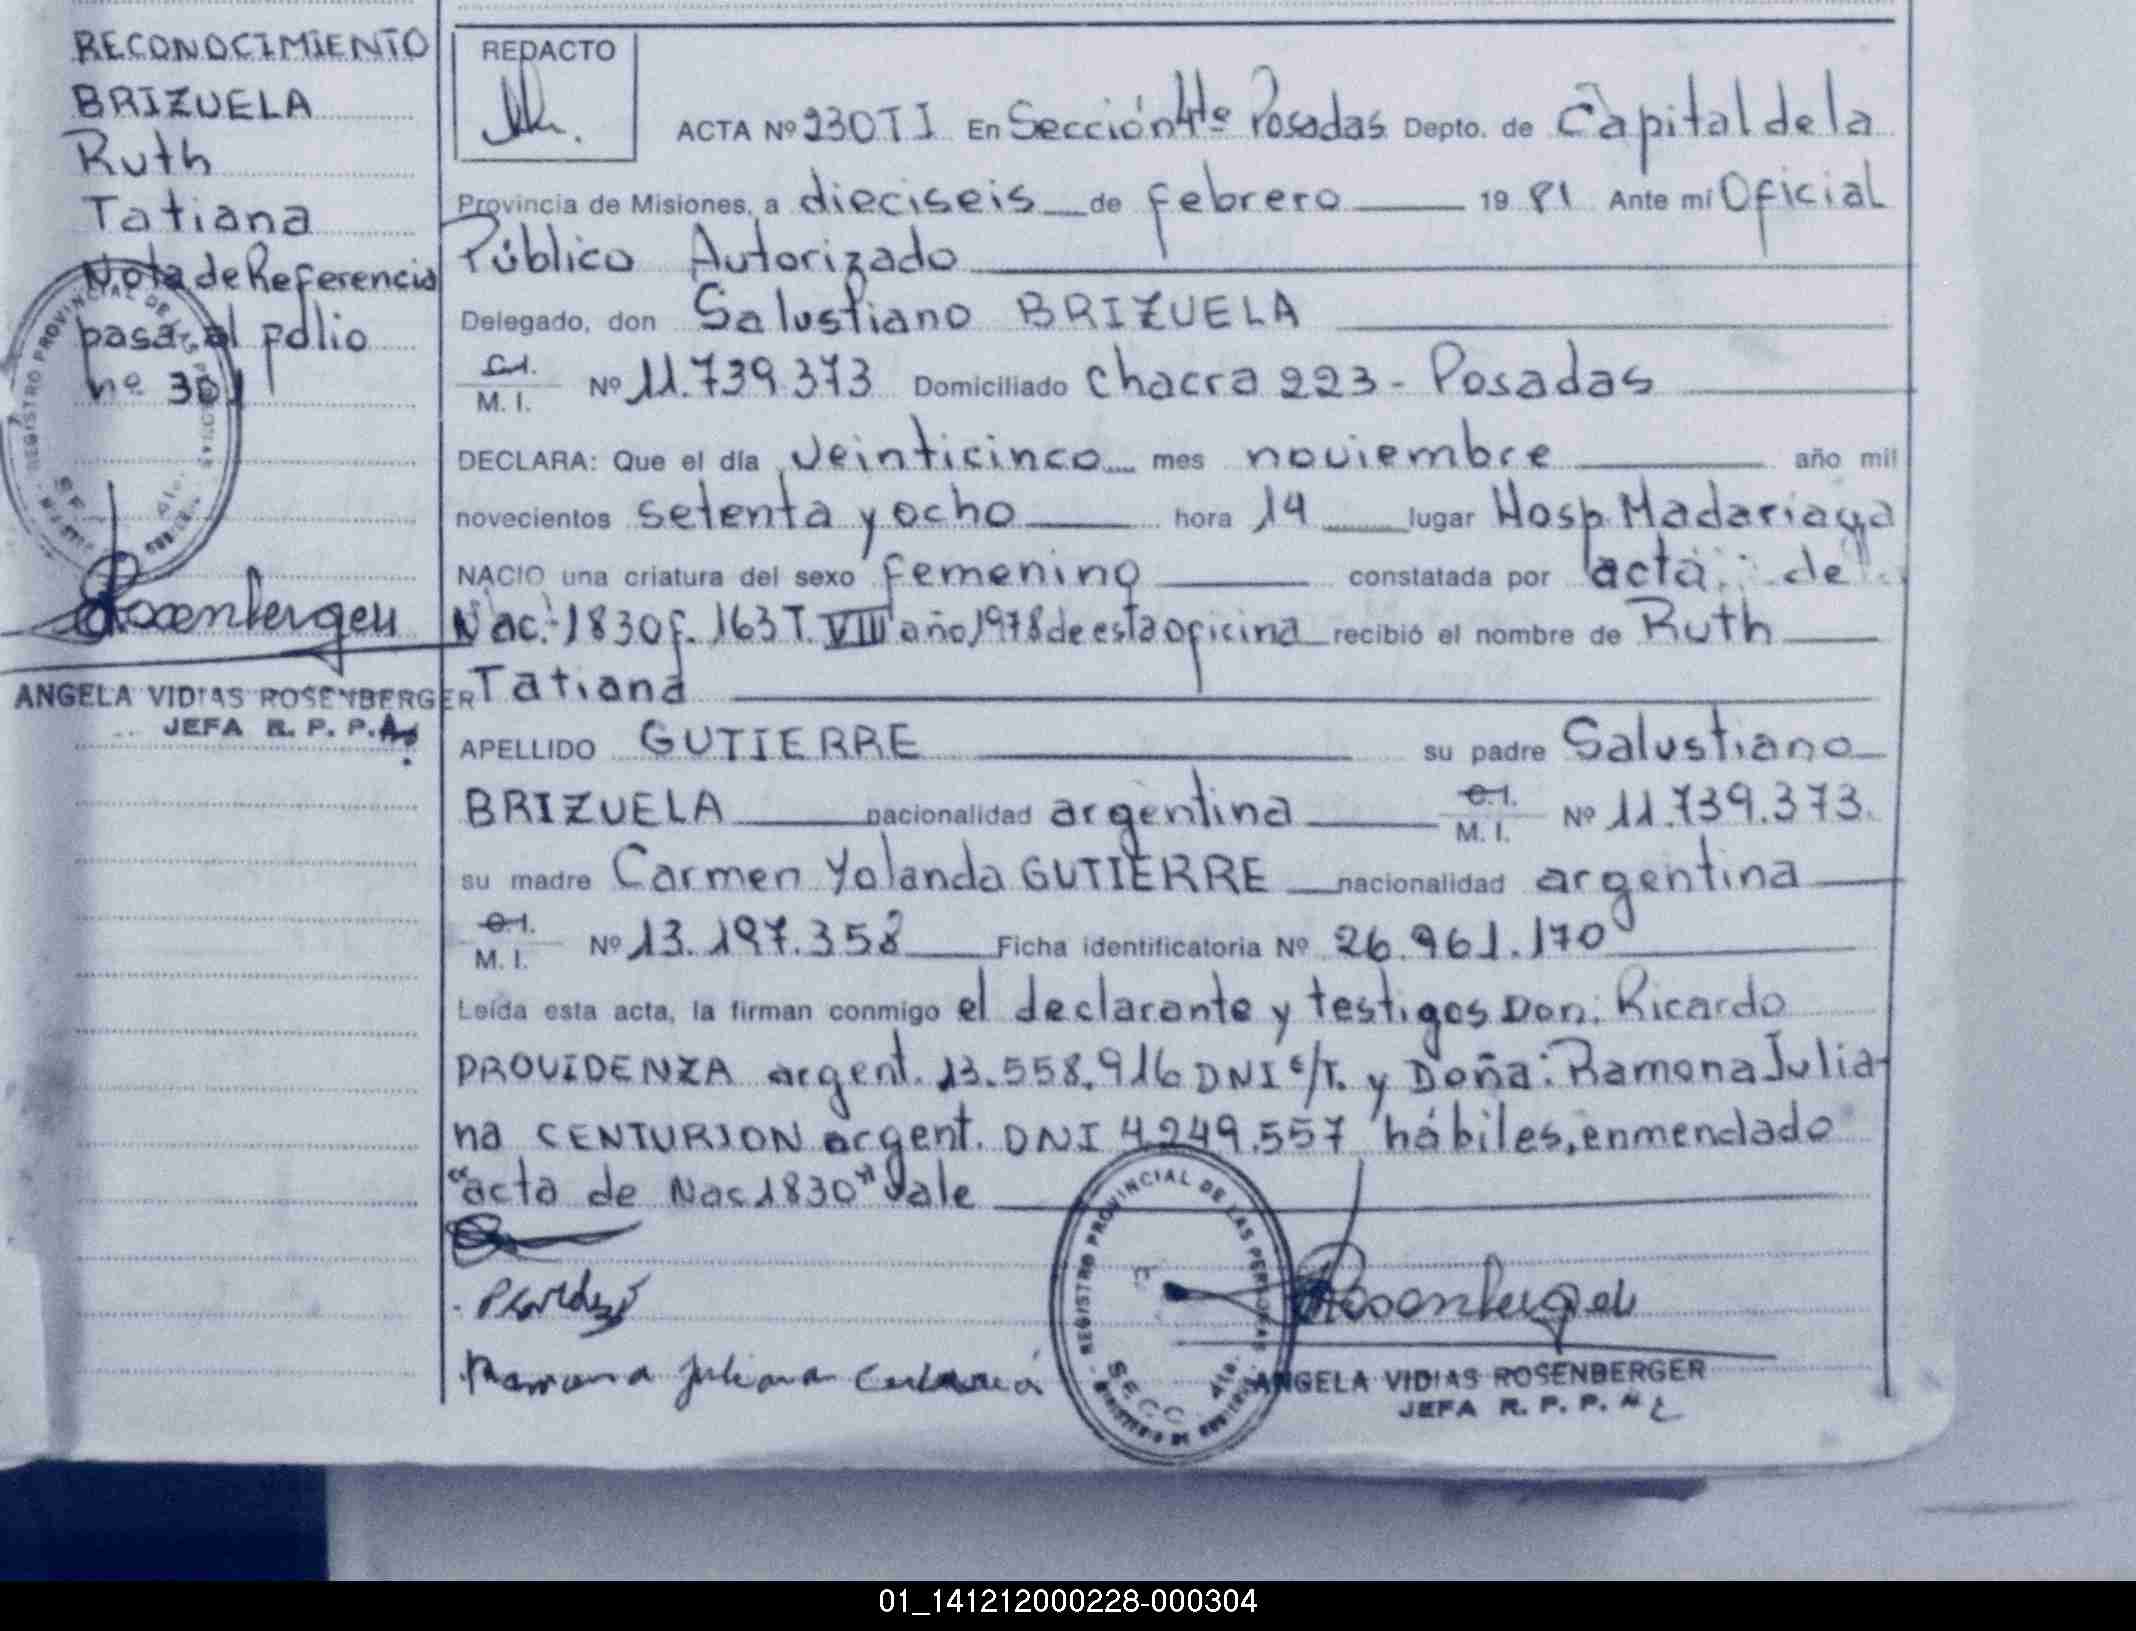 RECONOCIMIENTO
BRIZUELA
Ruth
Tatiana
Nota de Referencia
pasa al folio
nº 301
ANGELA VIDIAS ROSENBERGER
JEFA R. P. P.
REDACTO
ACTA Nº 230 T I En Sección 4ta Posadas Depto. de Capital de la
Provincia de Misiones, a dieciseis de febrero 19 81 Ante mí Oficial
Público Autorizado
Delegado, don Salustiano BRIZUELA
C.I. M. I. Nº 11.739.373 Domiciliado chacra 223 - Posadas
DECLARA: Que el día veinticinco mes noviembre año mil
novecientos setenta y ocho hora 14 lugar Hosp. Madariaga
NACIO una criatura del sexo femenino constatada por acta de
Nac. 1830 f. 163 T. VIII año 1978 de esta oficina recibió el nombre de Ruth
Tatiana
APELLIDO GUTIERRE su padre Salustiano
BRIZUELA nacionalidad argentina C.I. M. I. Nº 11.739.373.
su madre Carmen Yolanda GUTIERRE nacionalidad argentina
C.I. M. I. Nº 13.197.358 Ficha identificatoria Nº 26.961.170
Leída esta acta, la firman conmigo el declarante y testigos Don: Ricardo
PROVIDENZA argent. 13.558.916 DNI c/T. y Doña: Ramona Julia-
na CENTURION argent. DNI 4.249.557 hábiles, enmendado
"acta de Nac 1830" Vale
Ramona Juliana
REGISTRO PROVINCIAL DE LAS PERSONAS
SECC. 4ta.
Rosenberger
ANGELA VIDIAS ROSENBERGER
JEFA R. P. P.
01_141212000228-000304